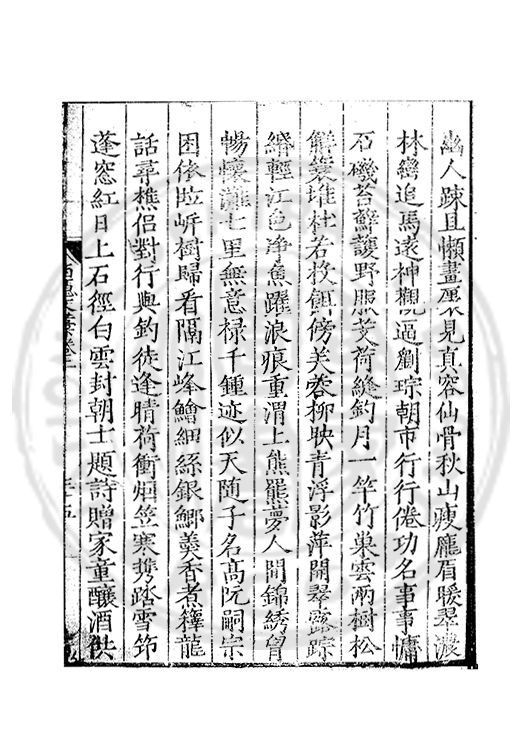 幽人疎且懶畫裏見真容仙骨秋山瘦龐眉暖翠濃
林巒追馬遠神觀逼劉琮朝市行行倦功名事事慵
石磯苔蘚護野服芰荷縫釣月一竿竹巢雲兩樹松
觧囊堆杜若投餌傍芙蓉柳映青浮影萍開翠露踪
綠輕江色净魚躍浪痕重渭上熊羆夢人間錦綉胷
暢懷灘七里無意禄千鍾迹似天随子名高阮嗣宗
困依苙㟁樹歸看隔江峰鱠細絲銀鯽羮香煮籜龍
話尋樵侣對行與釣徒逢晴荷衝烟笠寒携踏雪笻
蓬窓紅日上石徑白雲封朝士題詩贈家童釀酒供